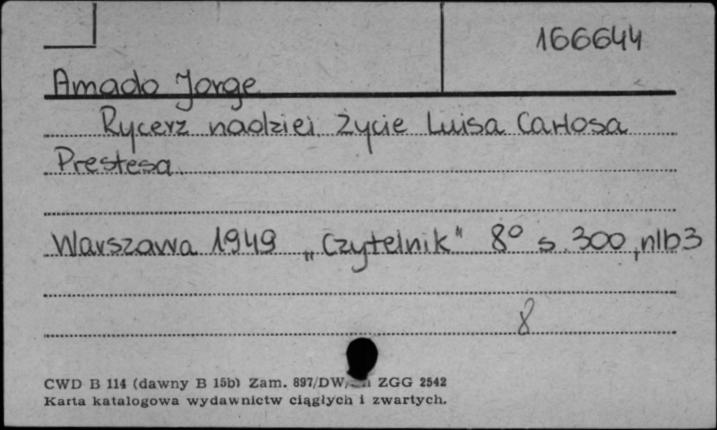 166644
Amado Jorge
Rycerz nadziei. Życie Luisa Carlosa
Prestesa.
Warszawa 1949 „Czytelnik" 8° s. 300, nlb 3
8
CWD B 114 (dawny B 15b) Zam. 897/DW/ ZGG 2542
Karta katalogowa wydawnictw ciągłych i zwartych.